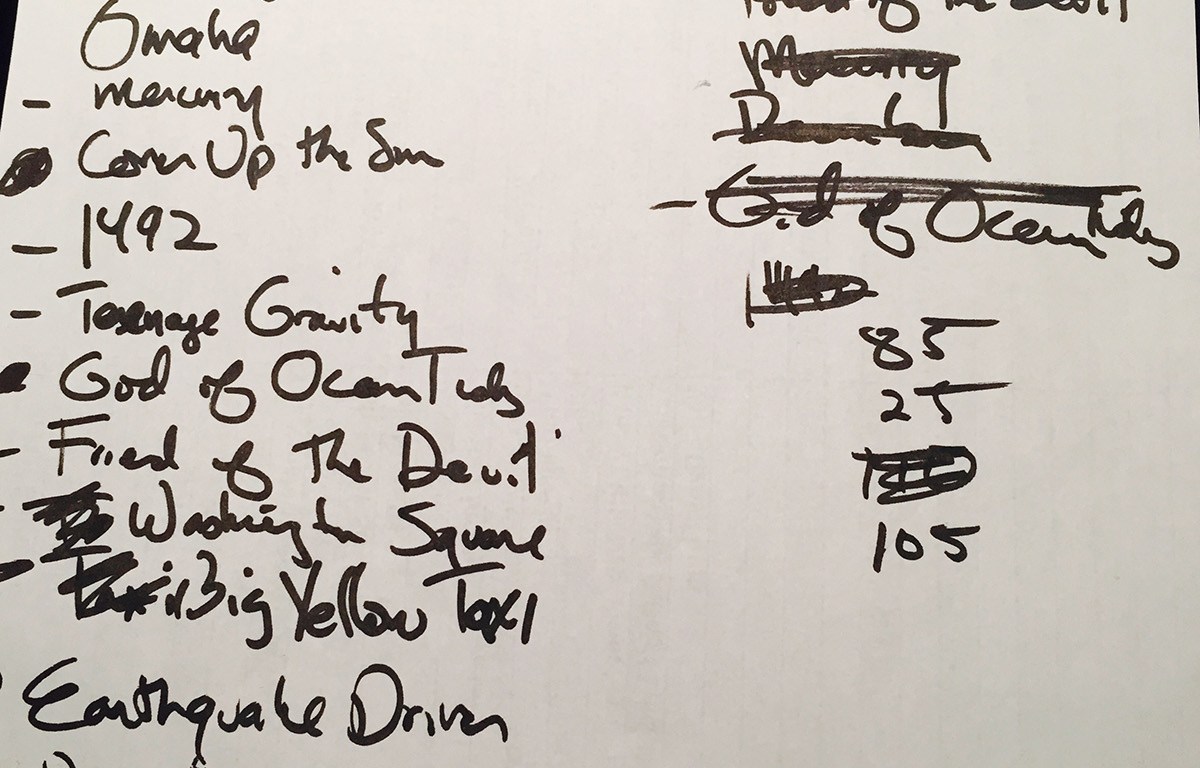 Omaha
- Mercury
Cover Up the Sun
- 1492
- Teenage Gravity
God of Ocean Tides
- Friend of The Devil
Washington Square
Big Yellow Taxi
Earthquake Driver
of the Devil
Mercury
- God of Ocean Tides
85
25
105